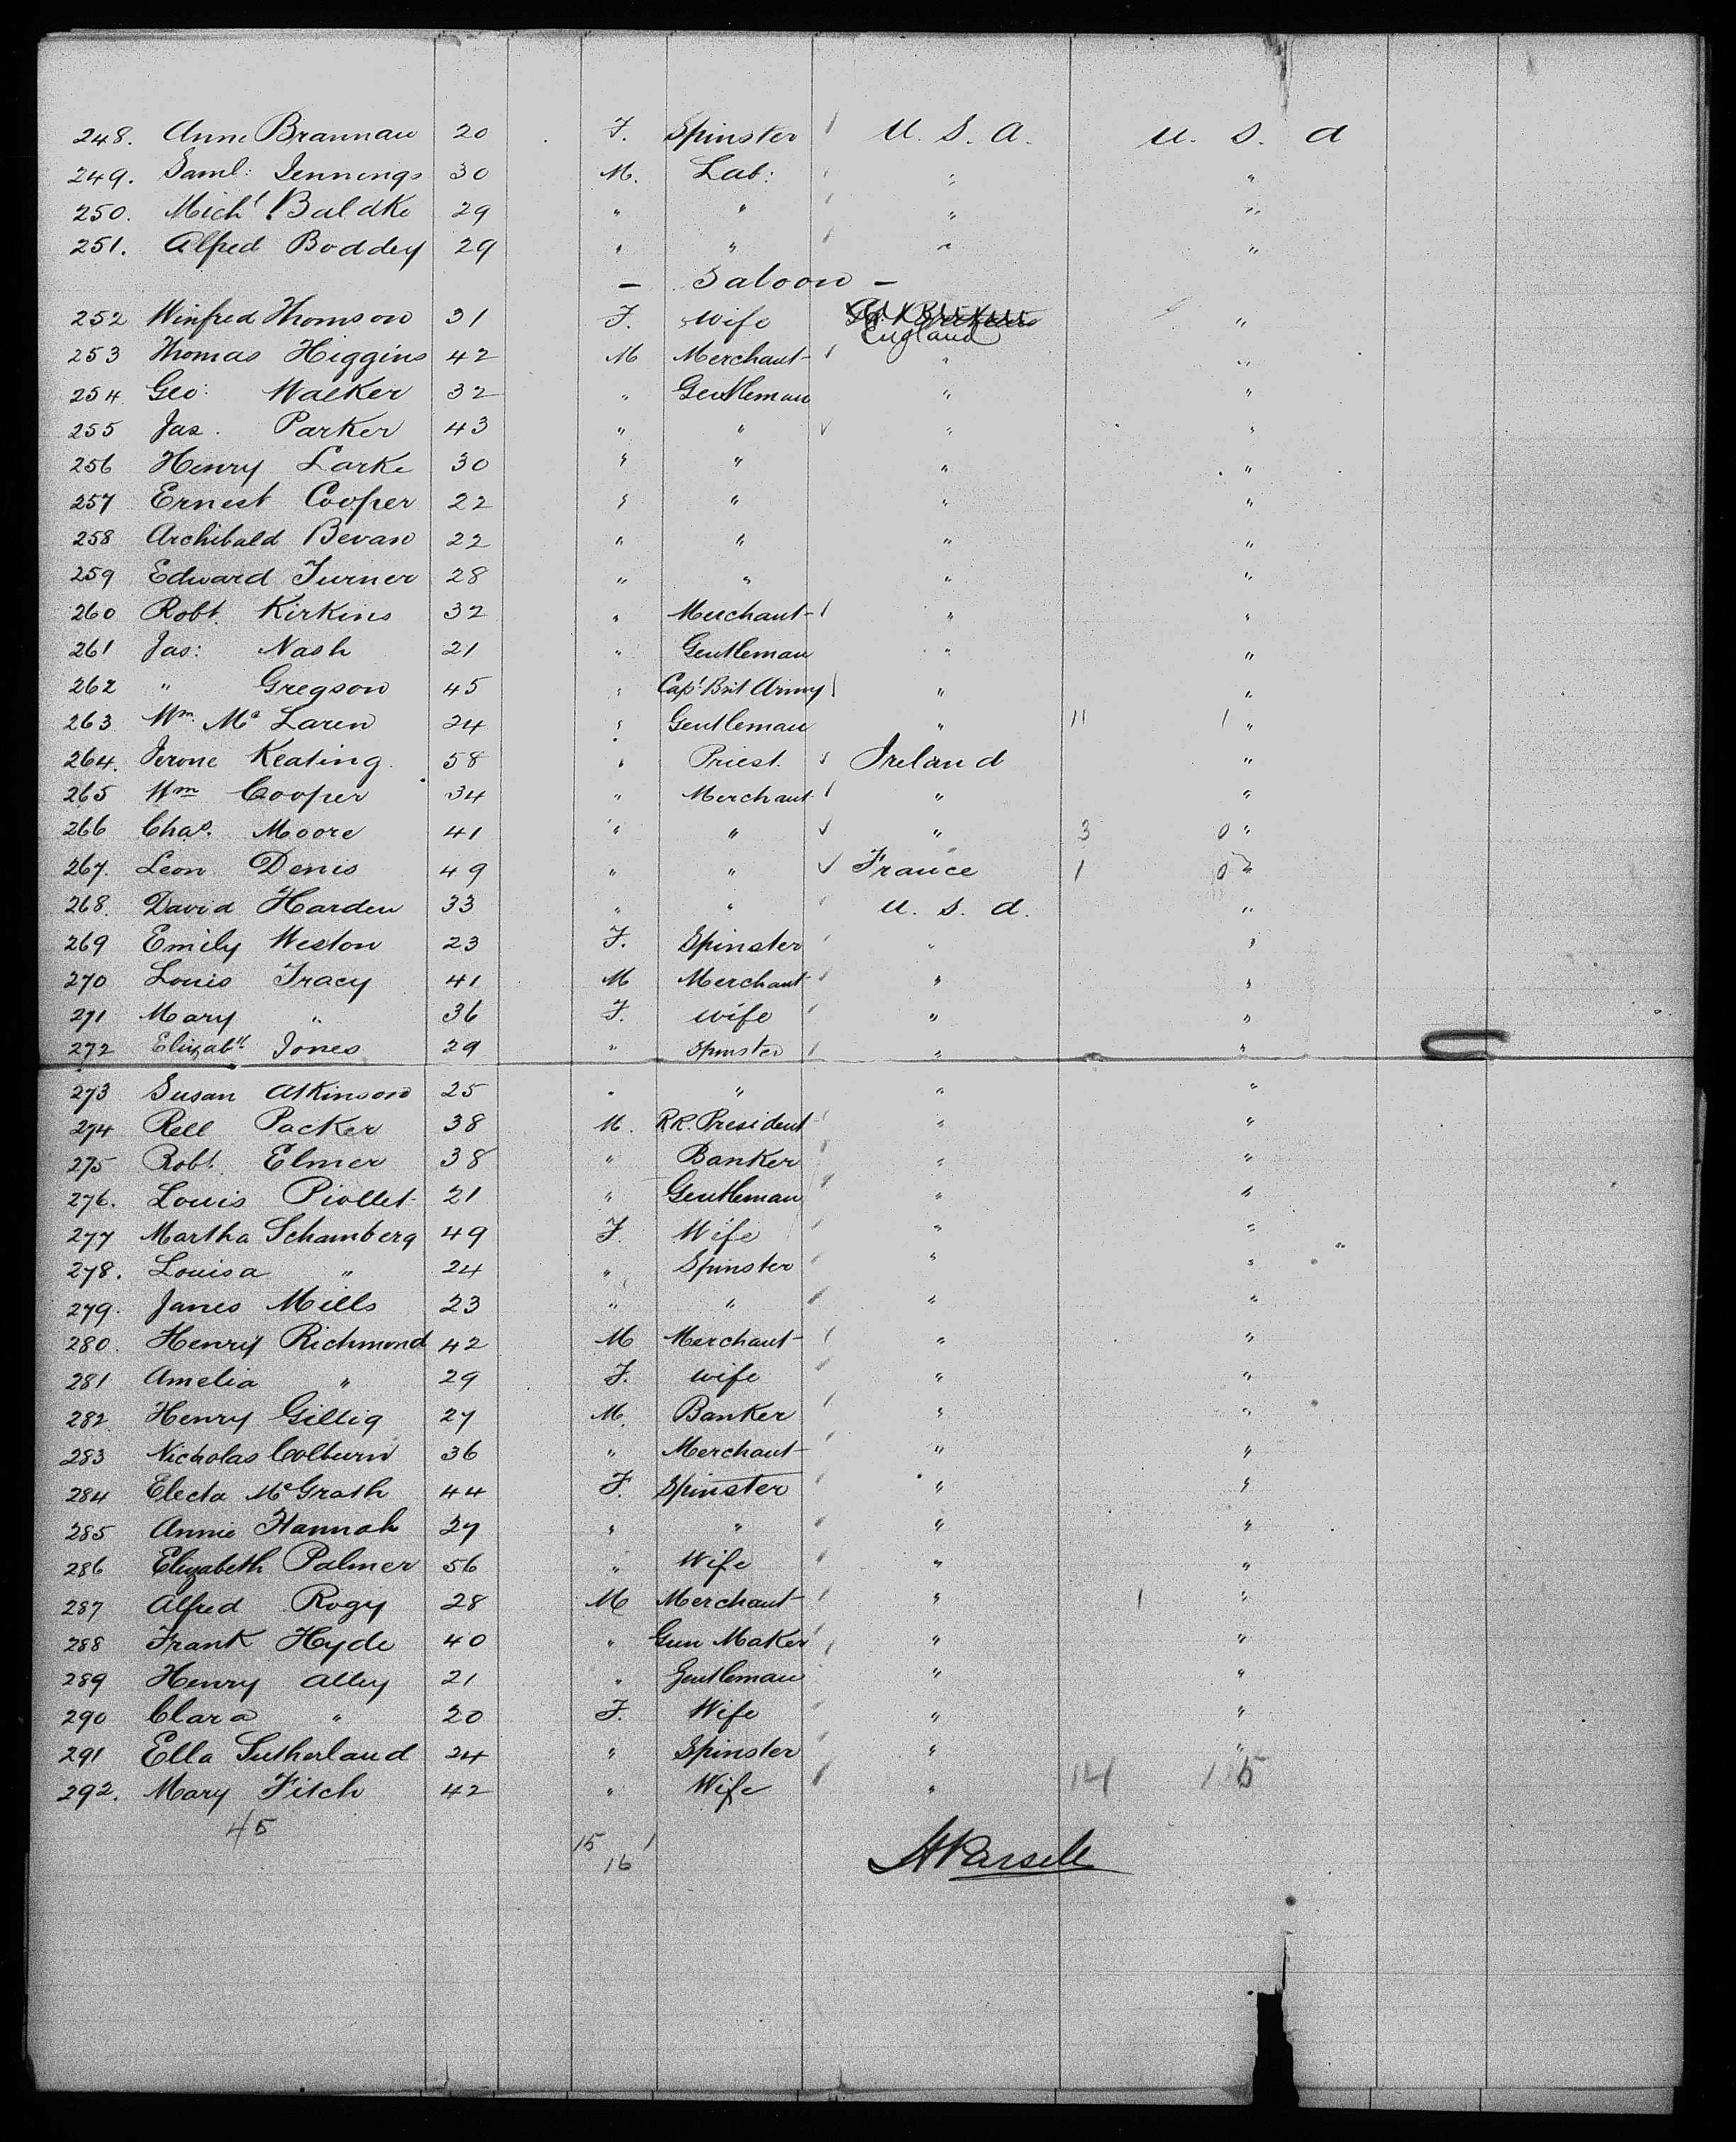 248. Anne Brannan 20 F. Spinster U. S. A. U. S. A
249. Saml: Jennings 30 M. Lab: " "
250. Michl. Baldke 29 " " " "
251. Alfred Boddey 29 " " " "
— Saloon —
252 Winfred Thomson 31 F. Wife England "
253 Thomas Higgins 42 M Merchant " "
254 Geo: Walker 32 " Gentleman " "
255 Jas. Parker 43 " " " "
256 Henry Larke 30 " " " "
257 Ernest Cooper 22 " " " "
258 Archibald Bevan 22 " " " "
259 Edward Turner 28 " " " "
260 Robt. Kirkins 32 " Merchant " "
261 Jas: Nash 21 " Gentleman " "
262 " Gregson 45 " Capt Brit Army " "
263 Wm. Mc Laren 24 " Gentleman " 11 1 "
264. Jerome Keating 58 " Priest. Ireland "
265 Wm Cooper 34 " Merchant " "
266 Chas. Moore 41 " " " 3 0 "
267. Leon Denis 49 " " France 1 0 "
268. David Harden 33 " " U. S. A. "
269 Emily Weston 23 F. Spinster " "
270 Louis Tracy 41 M Merchant " "
271 Mary " 36 F. Wife " "
272 Elizabth Jones 29 " Spinster " "
273 Susan Atkinson 25 " " " "
274 Rell Packer 38 M. R.R. President " "
275 Robt. Elmer 38 " Banker " "
276. Louis Piollet 21 " Gentleman " "
277 Martha Schamberg 49 F. Wife " "
278. Louisa " 24 " Spinster " "
279. Janes Mills 23 " " " "
280. Henry Richmond 42 M Merchant " "
281 Amelia " 29 F. Wife " "
282 Henry Gillig 27 M. Banker " "
283 Nicholas Colburn 36 " Merchant " "
284 Electa McGrath 44 F. Spinster " "
285 Annie Hannah 27 " " " "
286 Elizabeth Palmer 56 " Wife " "
287 Alfred Rogy 28 M Merchant " 1 "
288 Frank Hyde 40 " Gun Maker " "
289 Henry Alley 21 " Gentleman " "
290 Clara " 20 F. Wife " "
291 Ella Sutherland 24 " Spinster " "
292. Mary Fitch 42 " Wife " 14
45
15 1
16